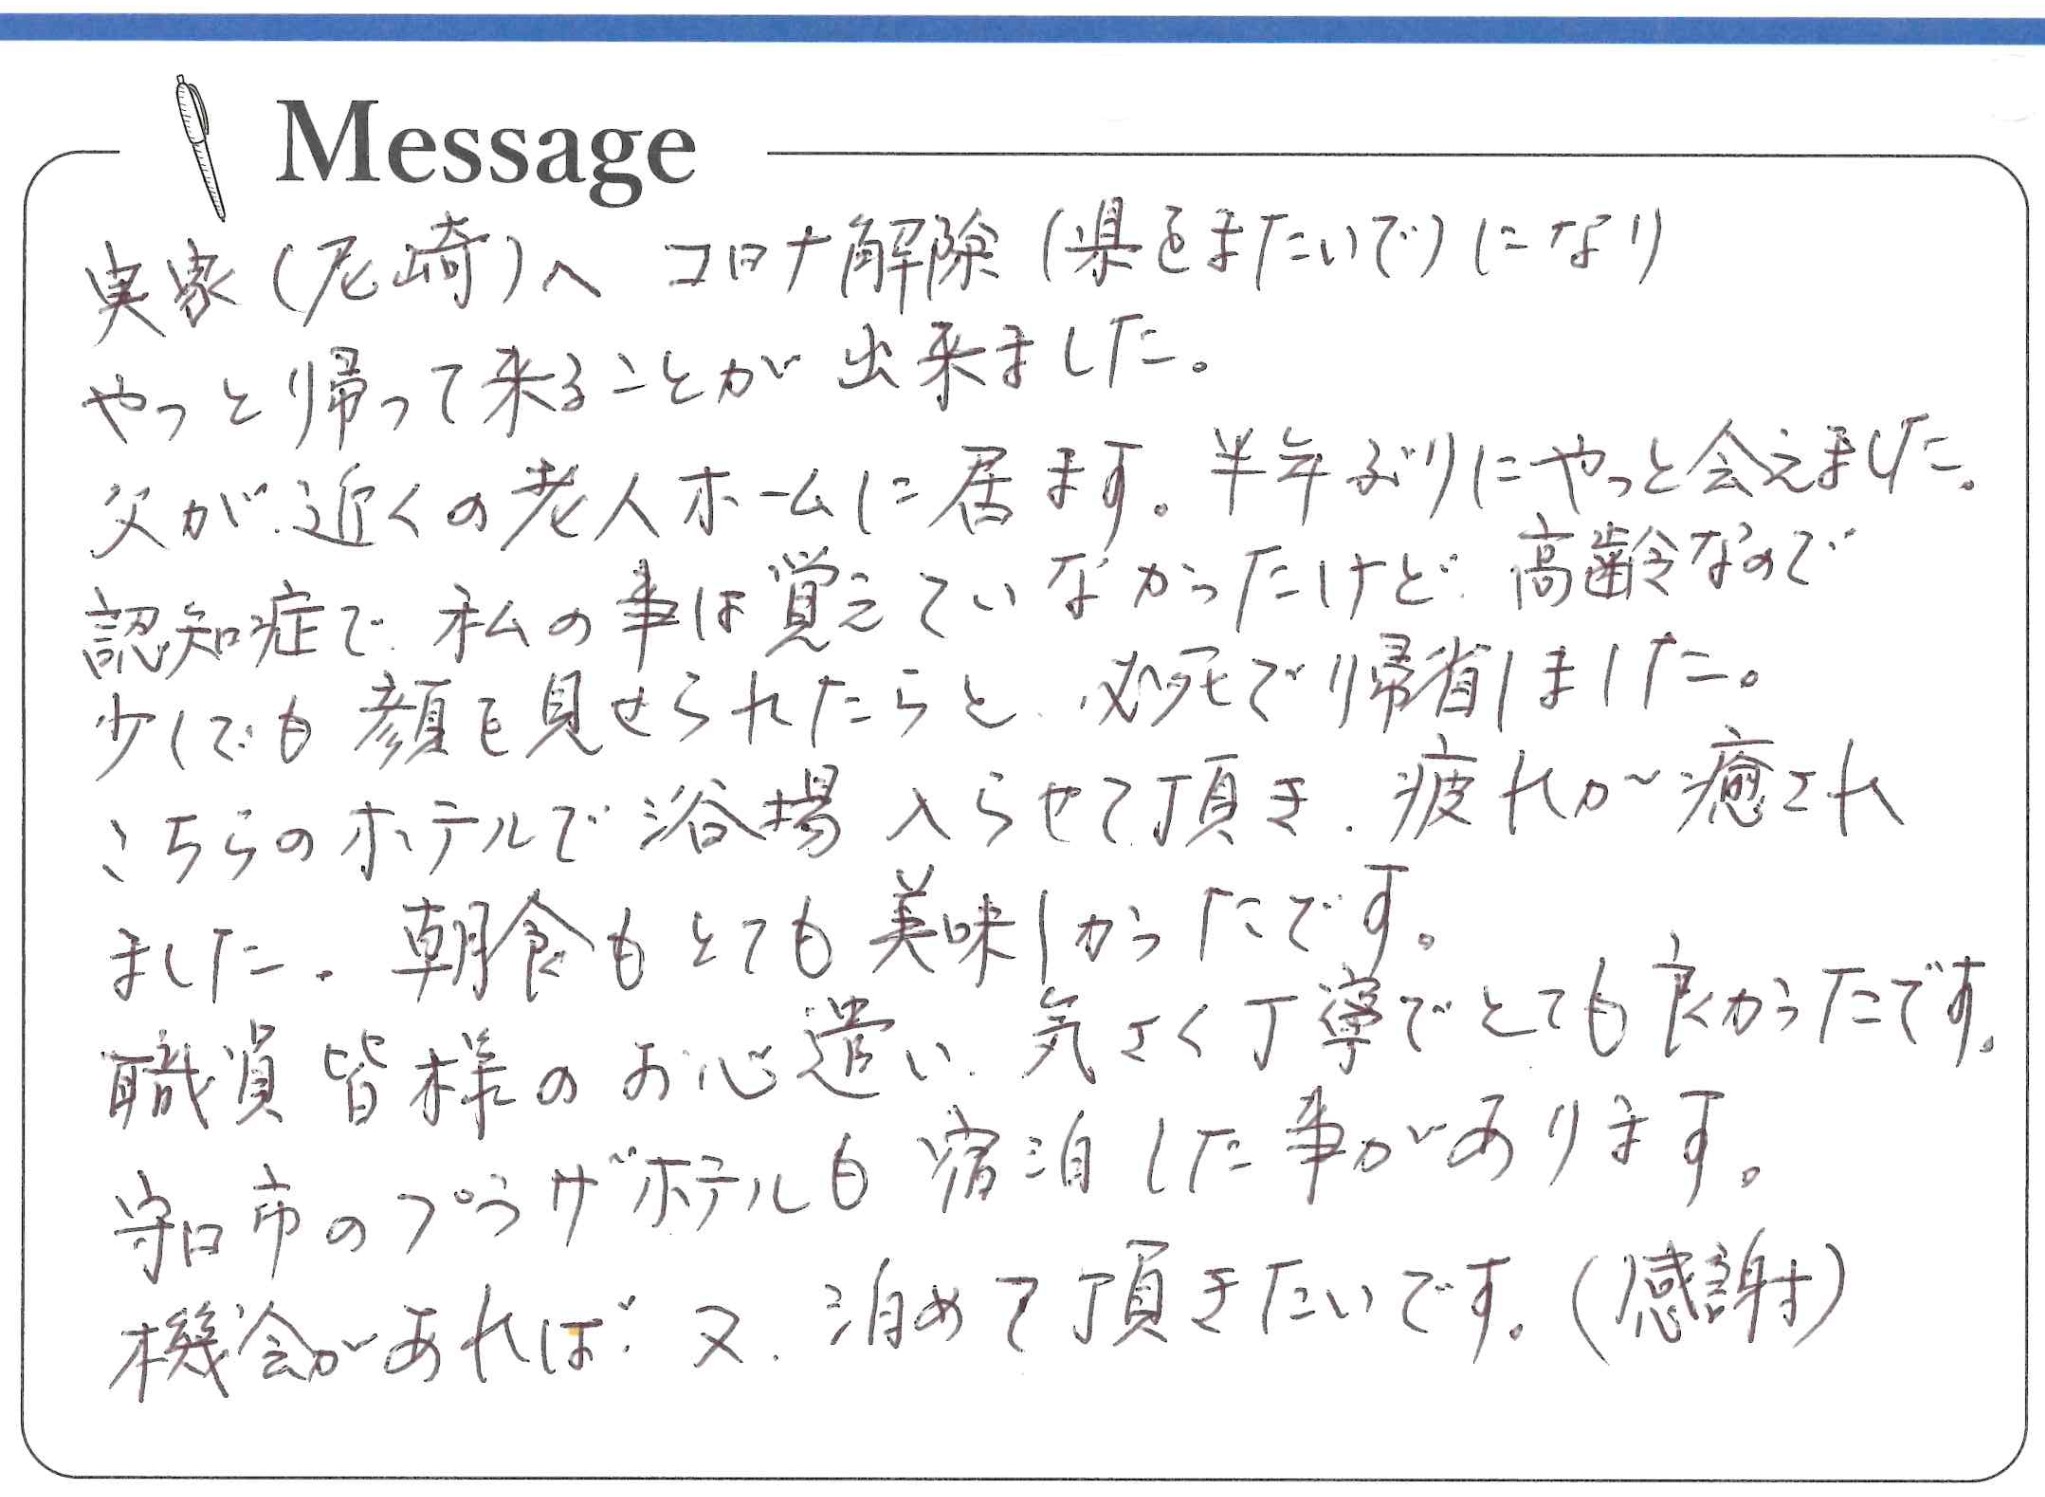 Message
実家(尼崎)へ コロナ解除(県をまたいで)になり
やっと帰って来ることが出来ました。
父が、近くの老人ホームに居ます。半年ぶりにやっと会えました。
認知症で、私の事は覚えていなかったけど、高齢なので
少しでも顔を見せられたらと、必死で帰省しました。
こちらのホテルで浴場入らせて頂き、疲れが癒され
ました。朝食もとても美味しかったです。
職員皆様のお心遣い、気さく丁寧でとても良かったです。
守口市のプラザホテルも宿泊した事があります。
機会があれば、又、泊めて頂きたいです。(感謝)